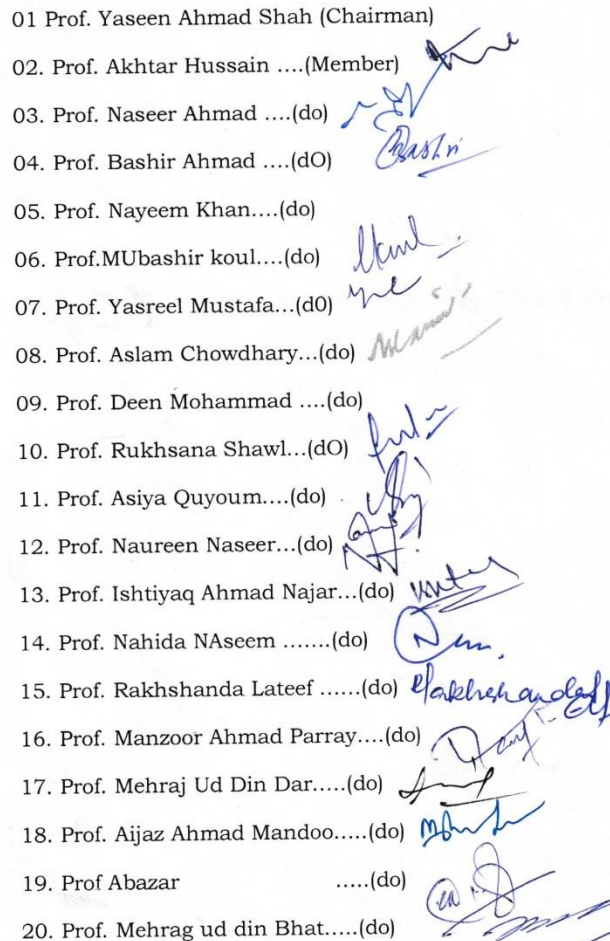 01 Prof. Yaseen Ahmad Shah (Chairman)
02. Prof. Akhtar Hussain ....(Member)
03. Prof. Naseer Ahmad ....(do)
04. Prof. Bashir Ahmad ....(dO) Bashir
05. Prof. Nayeem Khan....(do)
06. Prof.MUbashir koul....(do)
07. Prof. Yasreel Mustafa...(d0)
08. Prof. Aslam Chowdhary...(do)
09. Prof. Deen Mohammad ....(do)
10. Prof. Rukhsana Shawl...(dO)
11. Prof. Asiya Quyoum....(do)
12. Prof. Naureen Naseer...(do)
13. Prof. Ishtiyaq Ahmad Najar...(do)
14. Prof. Nahida NAseem .......(do)
15. Prof. Rakhshanda Lateef ......(do) Rakhshanda
16. Prof. Manzoor Ahmad Parray....(do)
17. Prof. Mehraj Ud Din Dar.....(do)
18. Prof. Aijaz Ahmad Mandoo.....(do)
19. Prof Abazar .....(do)
20. Prof. Mehrag ud din Bhat.....(do)